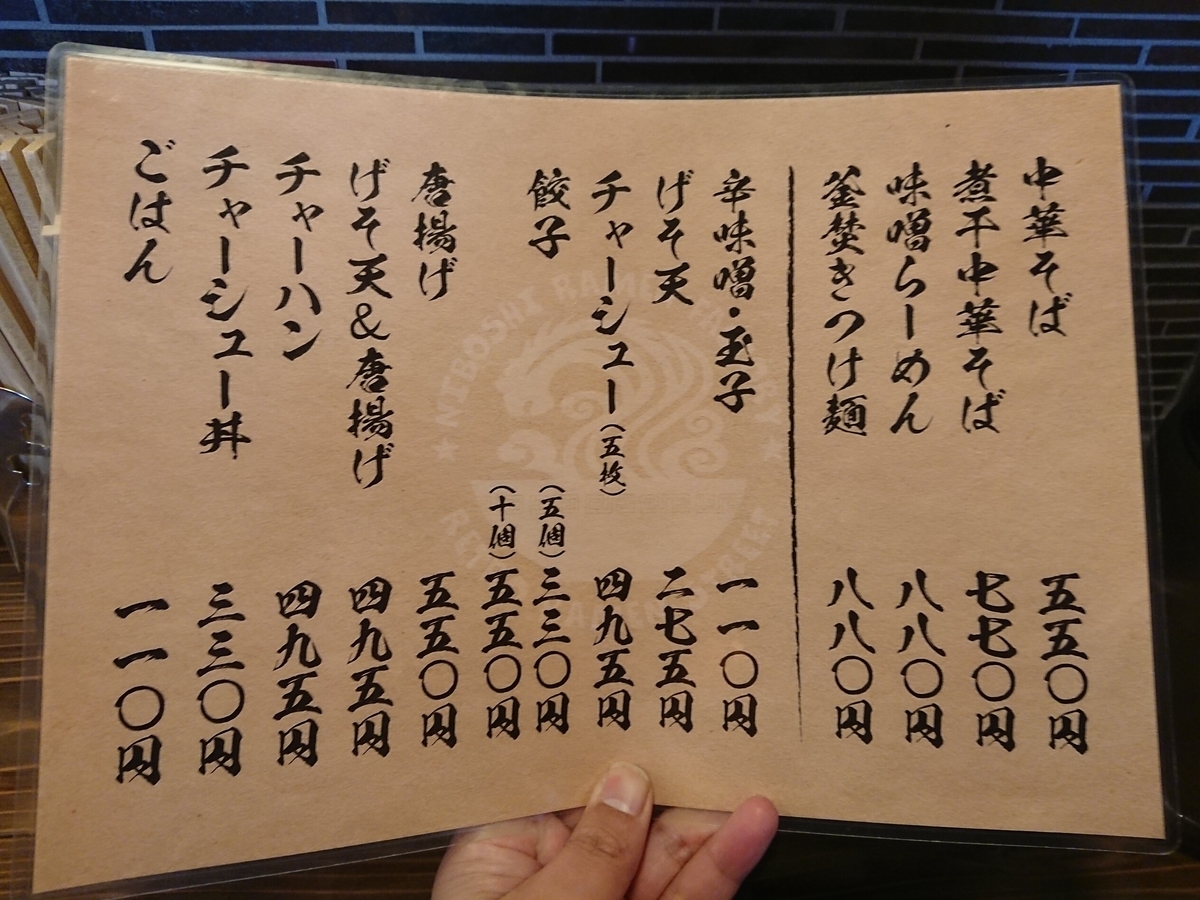 中華そば 五五〇円
煮干中華そば 七七〇円
味噌らーめん 八八〇円
釜焚きつけ麺 八八〇円
辛味噌・玉子 一一〇円
げそ天 二七五円
チャーシュー（五枚） 四九五円
餃子 （五個） 三三〇円
（十個） 五五〇円
唐揚げ 五五〇円
げそ天＆唐揚げ 四九五円
チャーハン 四九五円
チャーシュー丼 三三〇円
ごはん 一一〇円